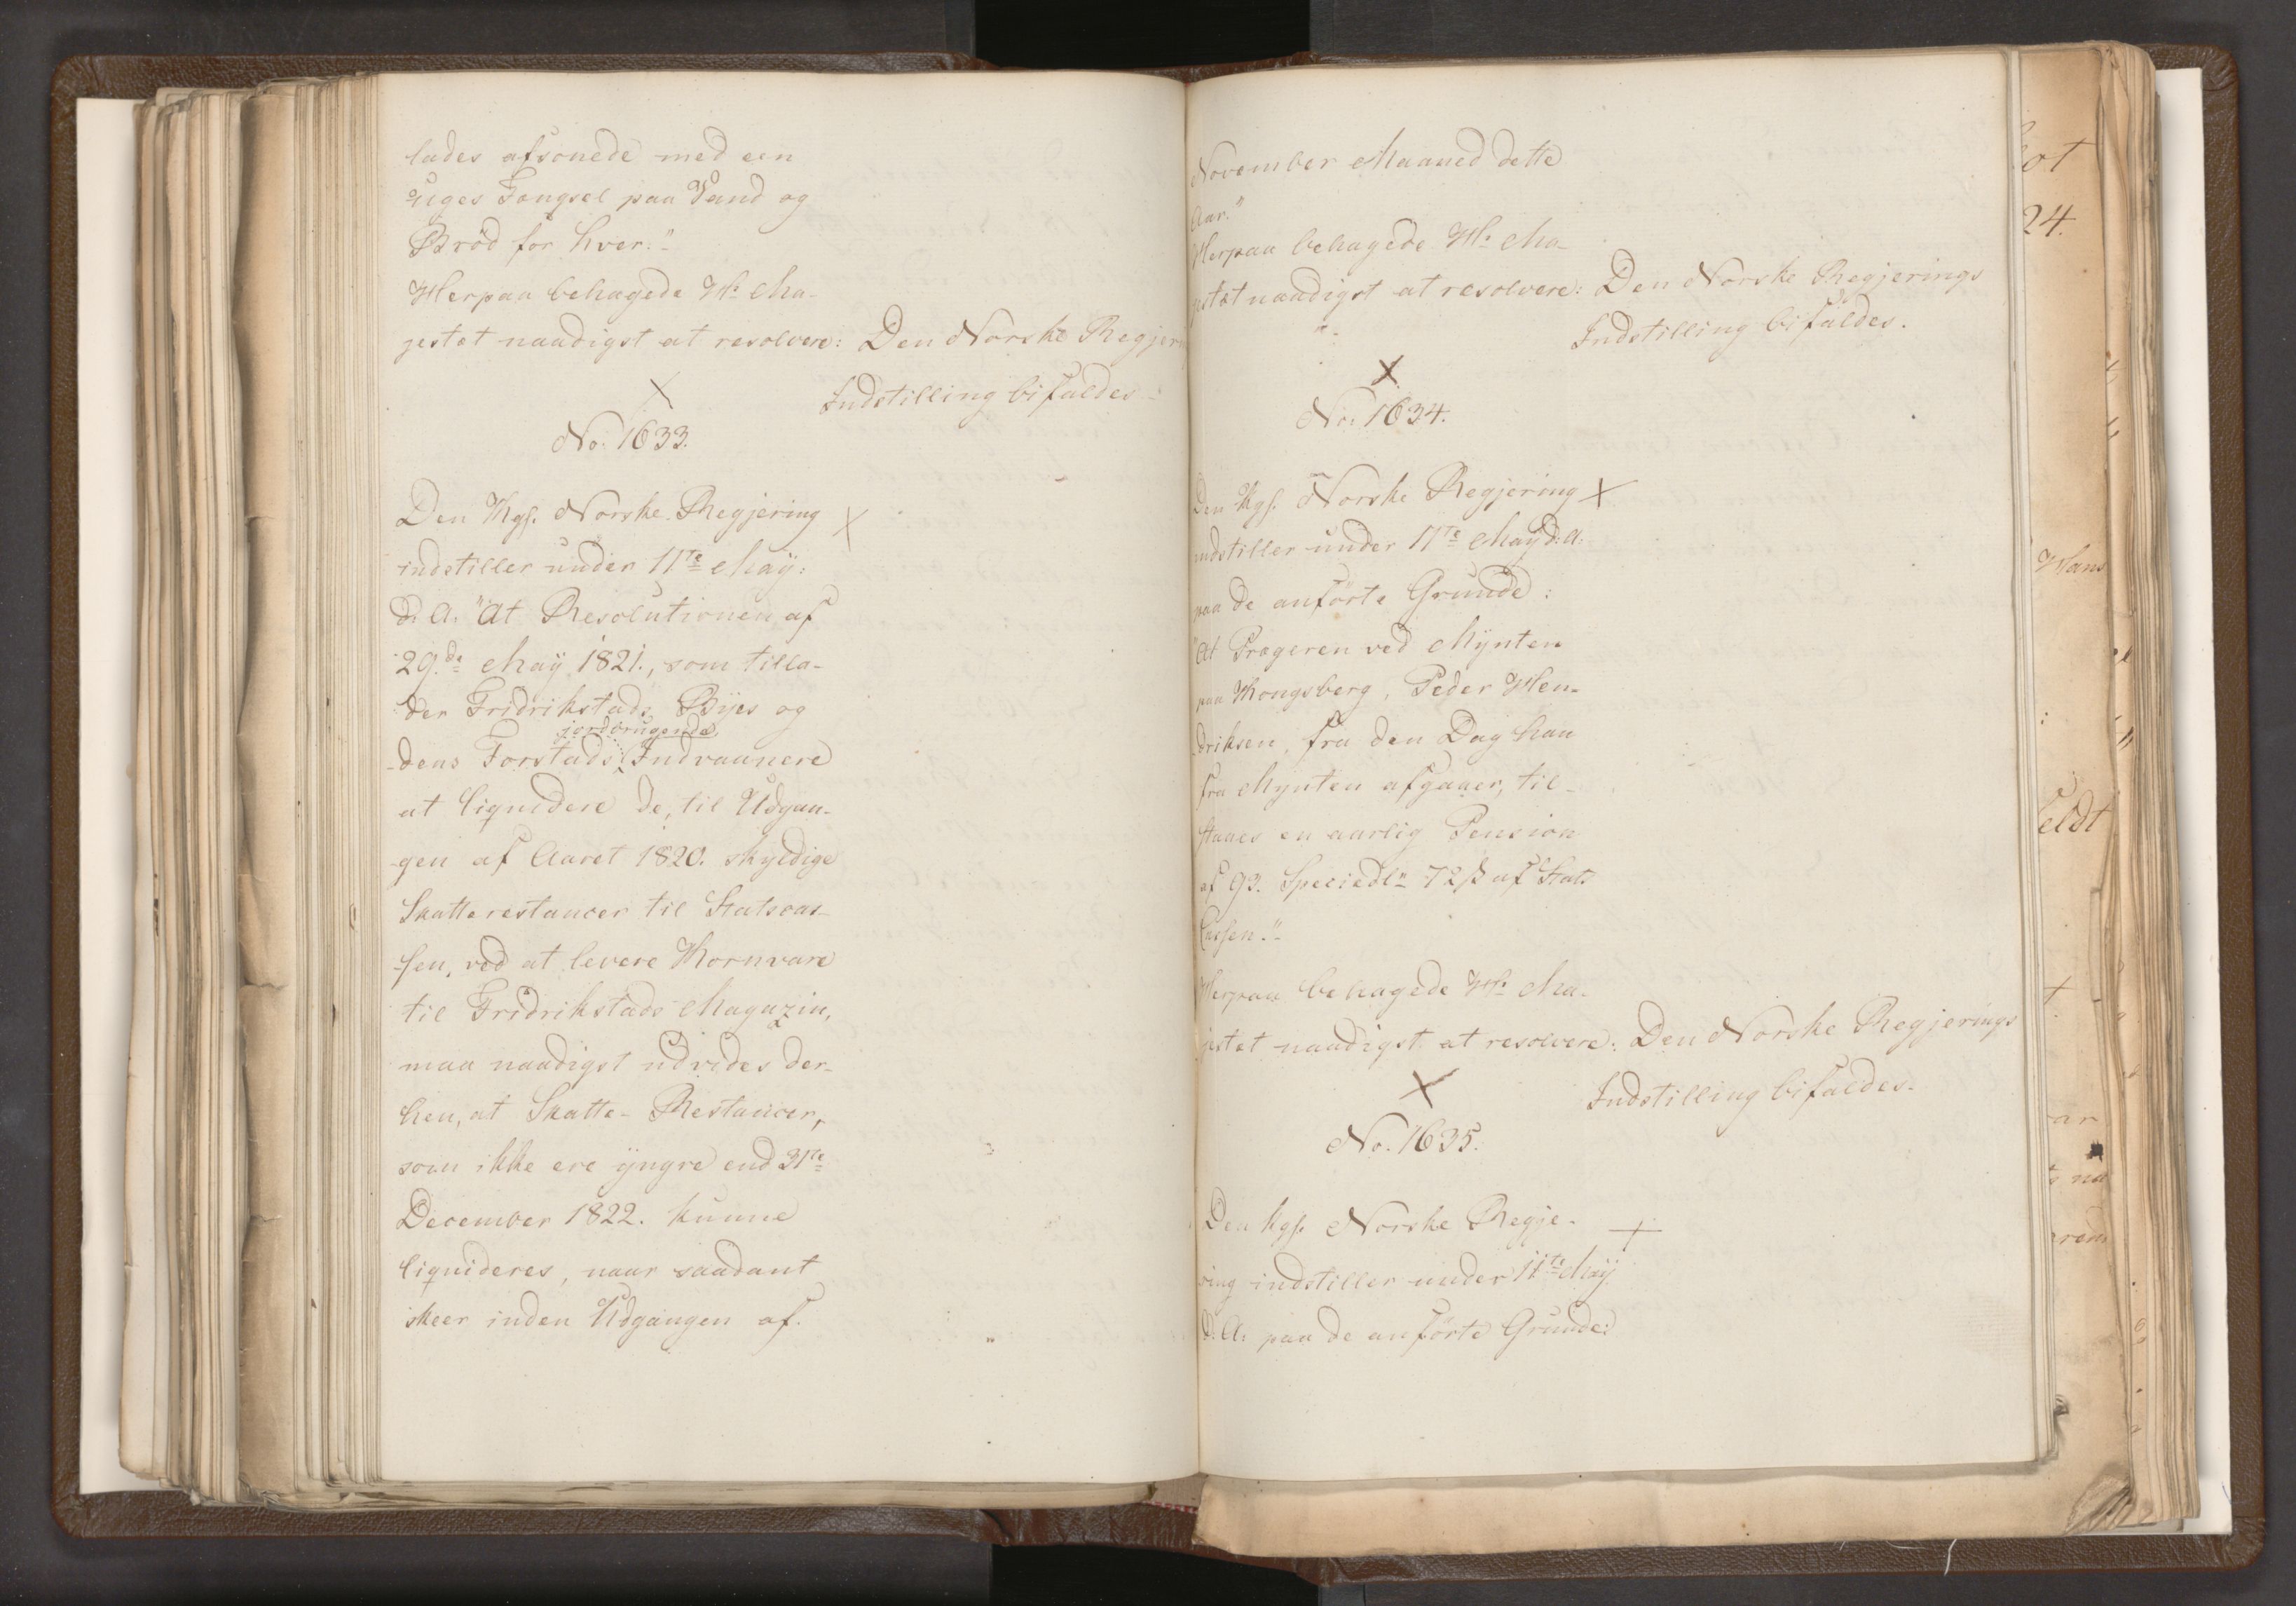 lades afsonede med een
Uges Fængsel paa Vand og
Brød for hver."
Herpaa behagede H: Ma-
jestæt naadigst at resolvere: Den Norske Regjeri
Indstilling bifaldes
X
No. 1633.
Den Kgs. Norske Regjering X
indstiller under 11te May:
d: A: "At Resolutionen af
29de May 1821., som tilla-
der Fridrikstads Byes og
jordbrugende
dens Forstads Indvaanere
at liqvidere de, til Udgan-
gen af Aaret 1820. skyldige
Skatterestancer til Statscas-
sen, ved at levere Kornvare
til Fridrikstads Magazin,
maa naadigst udvides der-
hen, at Skatte-Restancer,
som ikke ere yngre end 31te
December 1822. kunne
liqvideres, naar saadant
skeer inden Udgangen af
November Maaned dette
Aar."
Herpaa behagede H: Ma-
jestæt naadigst at resolvere: Den Norske Regjerings
Indstilling bifaldes.
X
No. 1634.
Den Kgs. Norske Regjering X
indstiller under 11te May d: A:
paa de anførte Grunde:
"At Prægeren ved Mynten
paa Kongsberg, Peder Hen-
driksen, fra den Dag han
fra Mynten afgaaer, til-
staaes en aarlig Pension
af 93. Speciedlr 72 ß af Stats
Cassen."
Herpaa behagede H: Ma-
jestæt naadigst at resolvere: Den Norske Regjerings
X
Indstilling bifaldes.
No. 1635.
Den Kgs. Norske Regje- +
ring indstiller under 11te May
d: A: paa de anførte Grunde:
24.
Hans
feldt